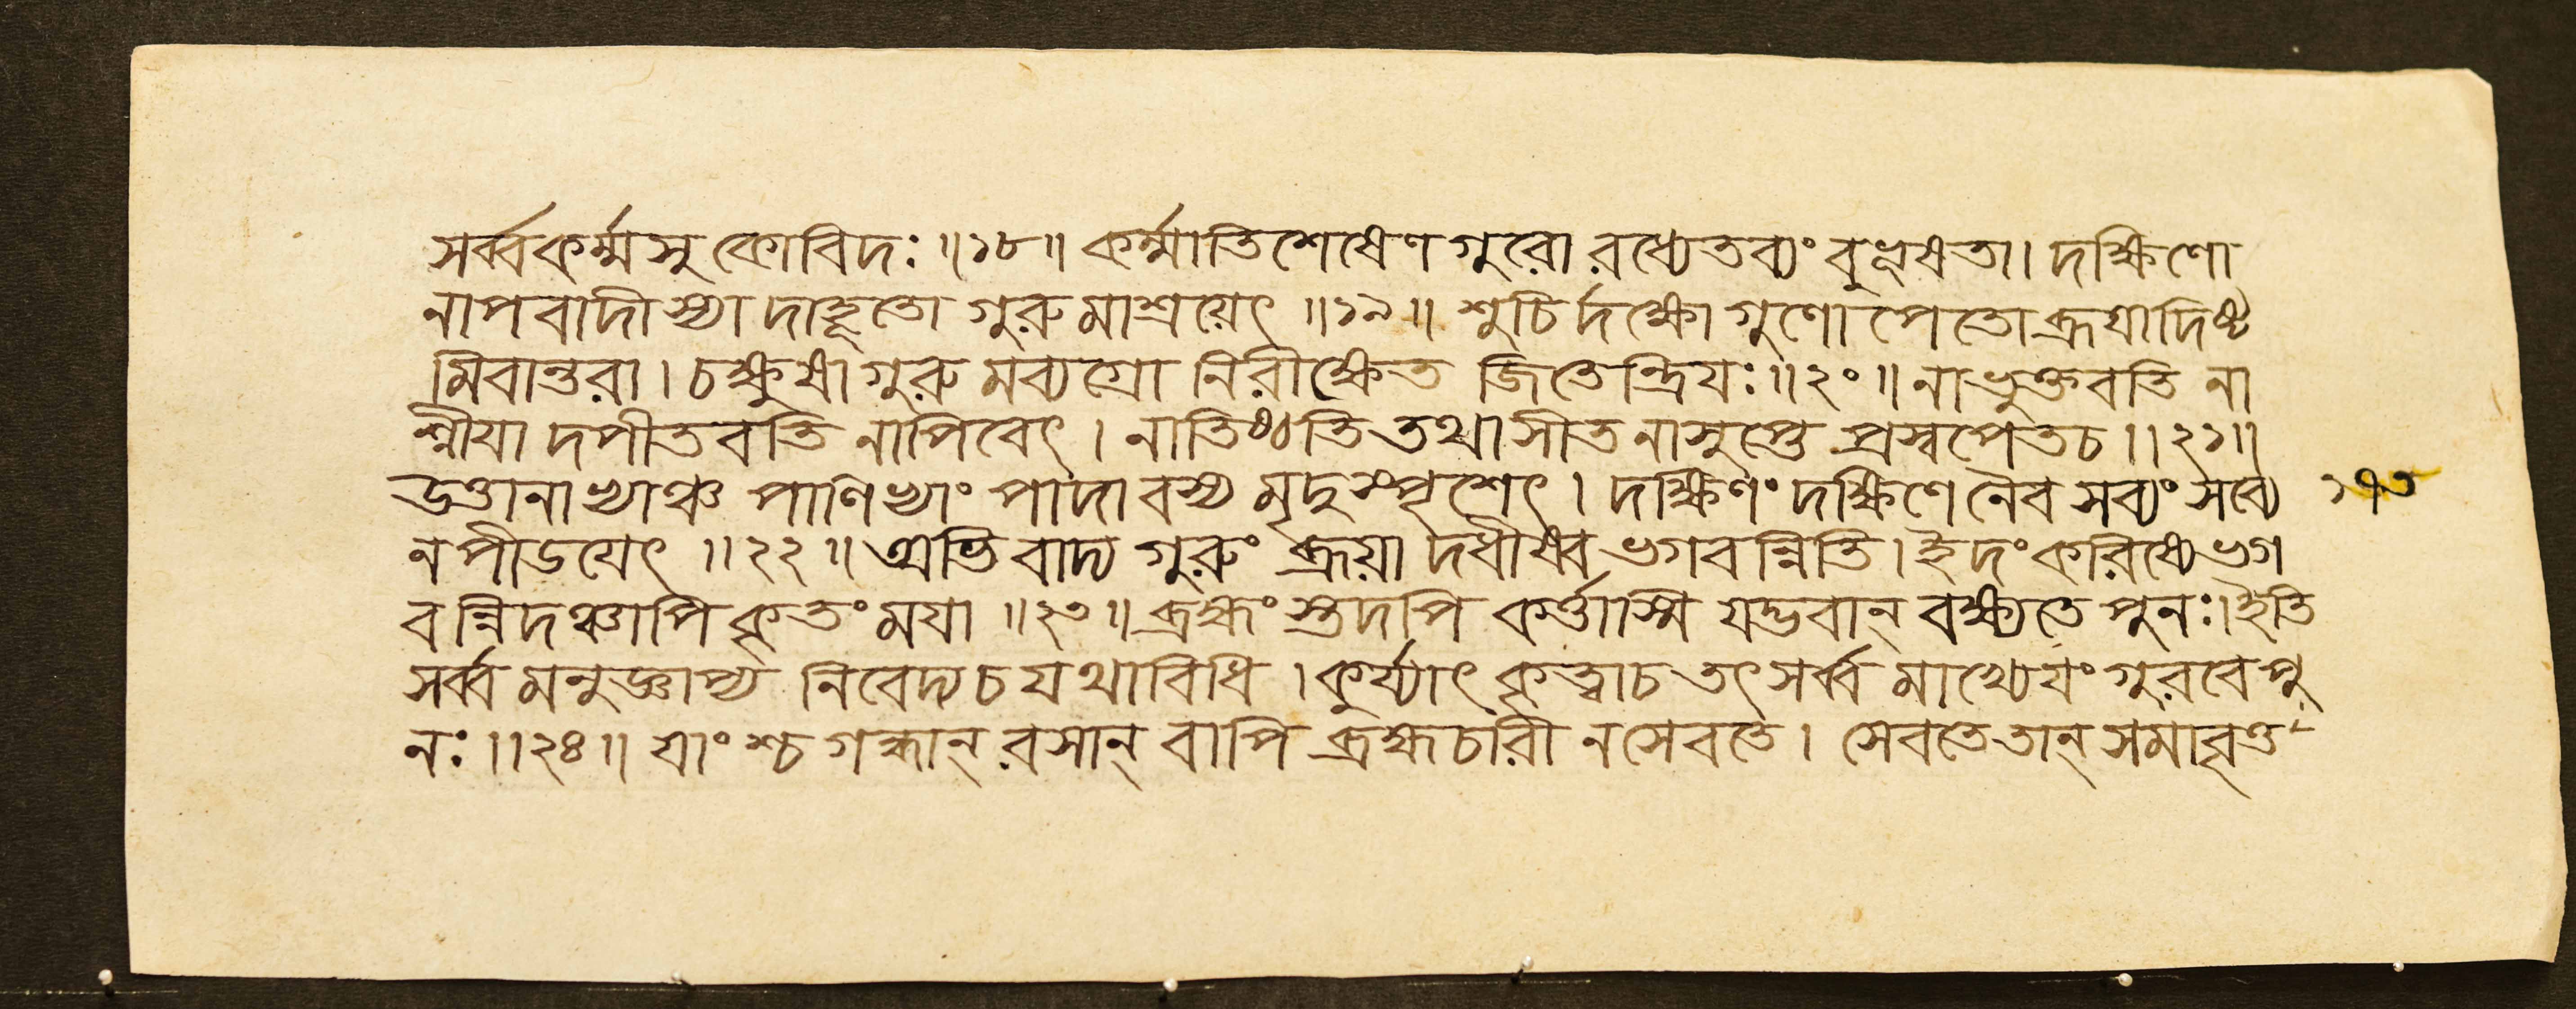 সর্ব্বকর্ম্মসু কোবিদঃ ॥১৮॥ কর্ম্মাতিশেষেণ গুরো রধ্যেতব্যং বুভূষতা। দক্ষিণো
নাপবাদী স্যা দাহূতো গুরুমাশ্রয়েৎ ॥১৯॥ শুচির্দক্ষো গুণোপেতো ব্রূয়াদিষ্ট
মিবান্তরা। চক্ষুষা গুরুমব্যগ্রো নিরীক্ষেত জিতেন্দ্রিযঃ॥২০॥ নাভুক্তবতি না
শ্নীযা দপীতবতি নাপিবেৎ। নাতিষ্ঠতি তথাসীত নাসুপ্তে প্রস্বপেতচ॥২১॥
উত্তানাভ্যাঞ্চ পাণিভ্যাং পাদাবস্য মৃদুস্পৃশেৎ। দক্ষিণং দক্ষিণেনৈব সব্যং সব্যে
১৭৩
ন পীডযেৎ ॥২২॥ অভিবাদ্য গুরুং ব্রূয়া দধীষ্ব ভগবন্নিতি। ইদং করিষ্যে ভগ
বন্নিদঞ্চাপি কৃতং মযা ॥২৩॥ ব্রহ্মং স্তদপি কর্ত্তাস্মি যদ্ভবান্ বক্ষ্যতে পুনঃ। ইতি
সর্ব্বমনুজ্ঞাপ্য নিবেদ্যচ যথাবিধি। কুর্য্যাৎ কৃত্বাচ তৎসর্ব্ব মাখ্যেযং গুরবে পু
নঃ॥২৪॥ যাংশ্চ গন্ধান্ রসান্ বাপি ব্রহ্মচারী নসেবতে। সেবতে তান্ সমাবৃত্ত